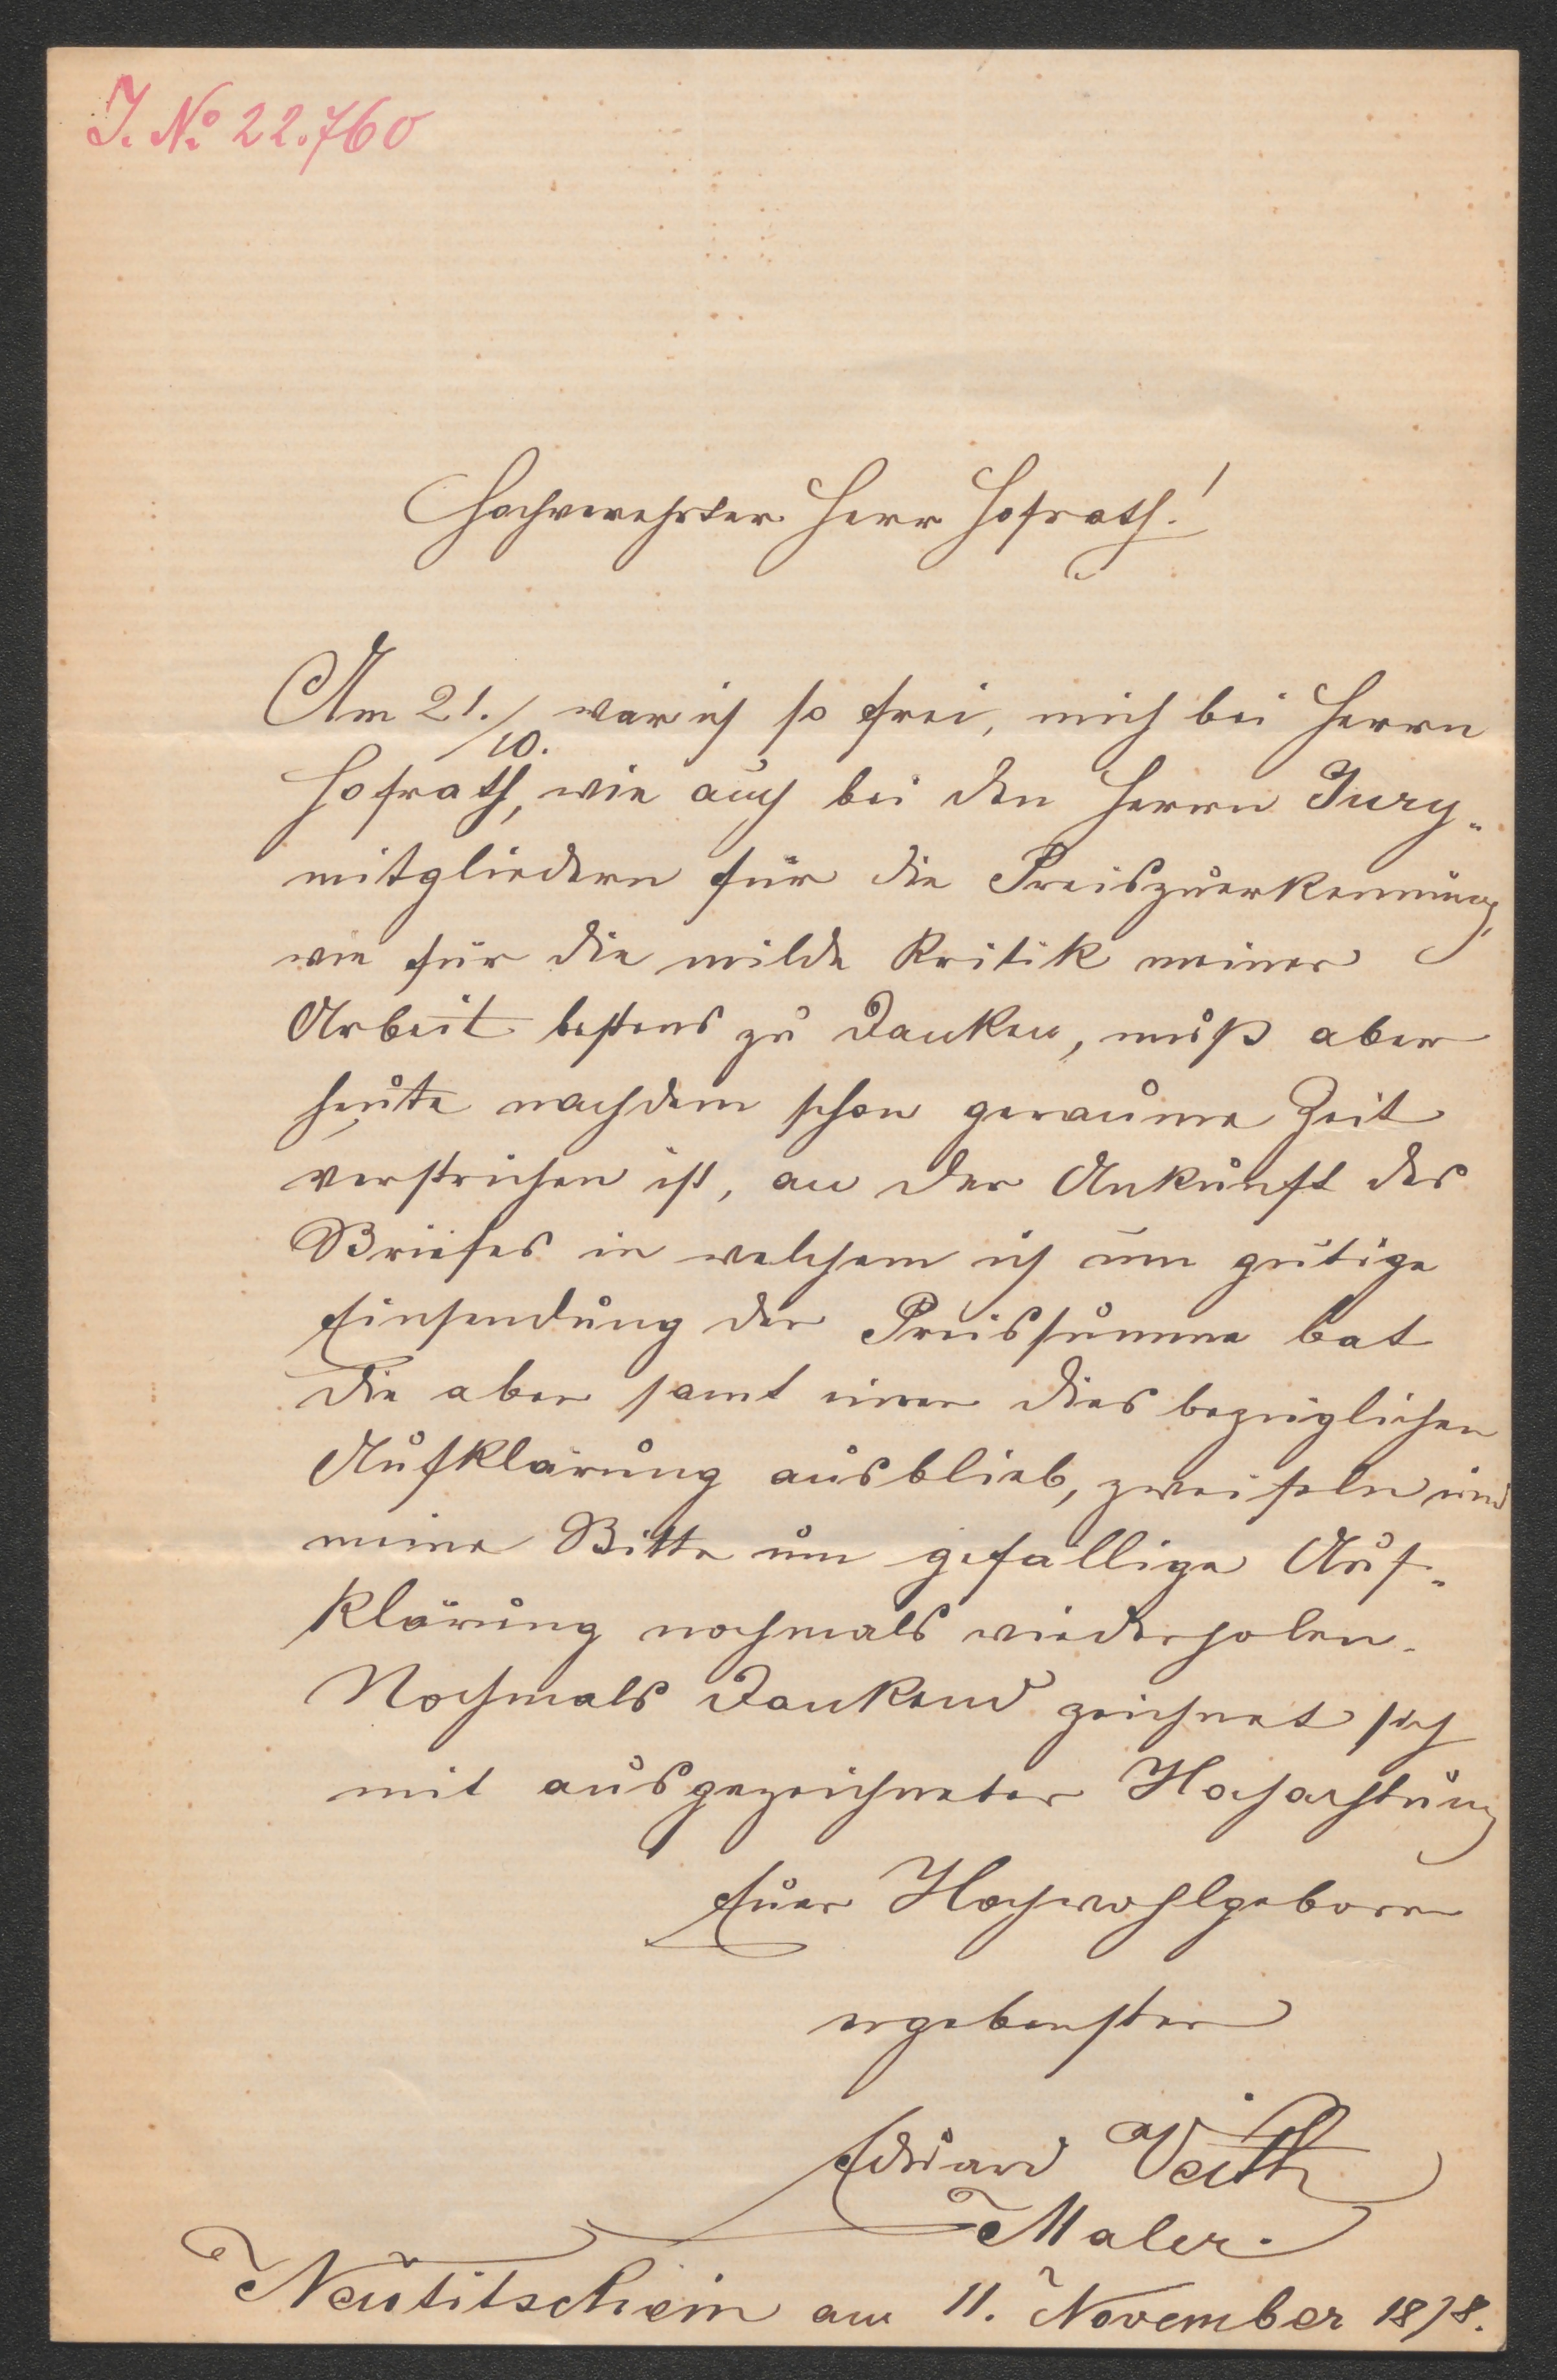 I. No 22.760
Hochverehrter Herr Hofrath!
Am 21./10. war ich so frei, mich bei Herrn
Hofrath, wie auch bei den Herrn Jury-
mitgliedern für die Preiszuerkennung,
wie für die milde Kritik meiner
Arbeit bestens zu danken, muß aber
heute nachdem schon geraume Zeit
verstrichen ist, an der Ankunft des
Briefes in welchem ich um gütige
Einsendung der Preissumme bat
die aber samt einer dies bezüglichen
Aufklärung ausblieb, zweifeln und
meine Bitte um gefällige Auf-
klärung nochmals wiederholen.
Nochmals dankend zeichnet sich
mit ausgezeichneter Hochachtung
Euer Hochwohlgeboren
ergebenster
Eduard Veith
Maler.
Neutitschein am 11. November 1878.